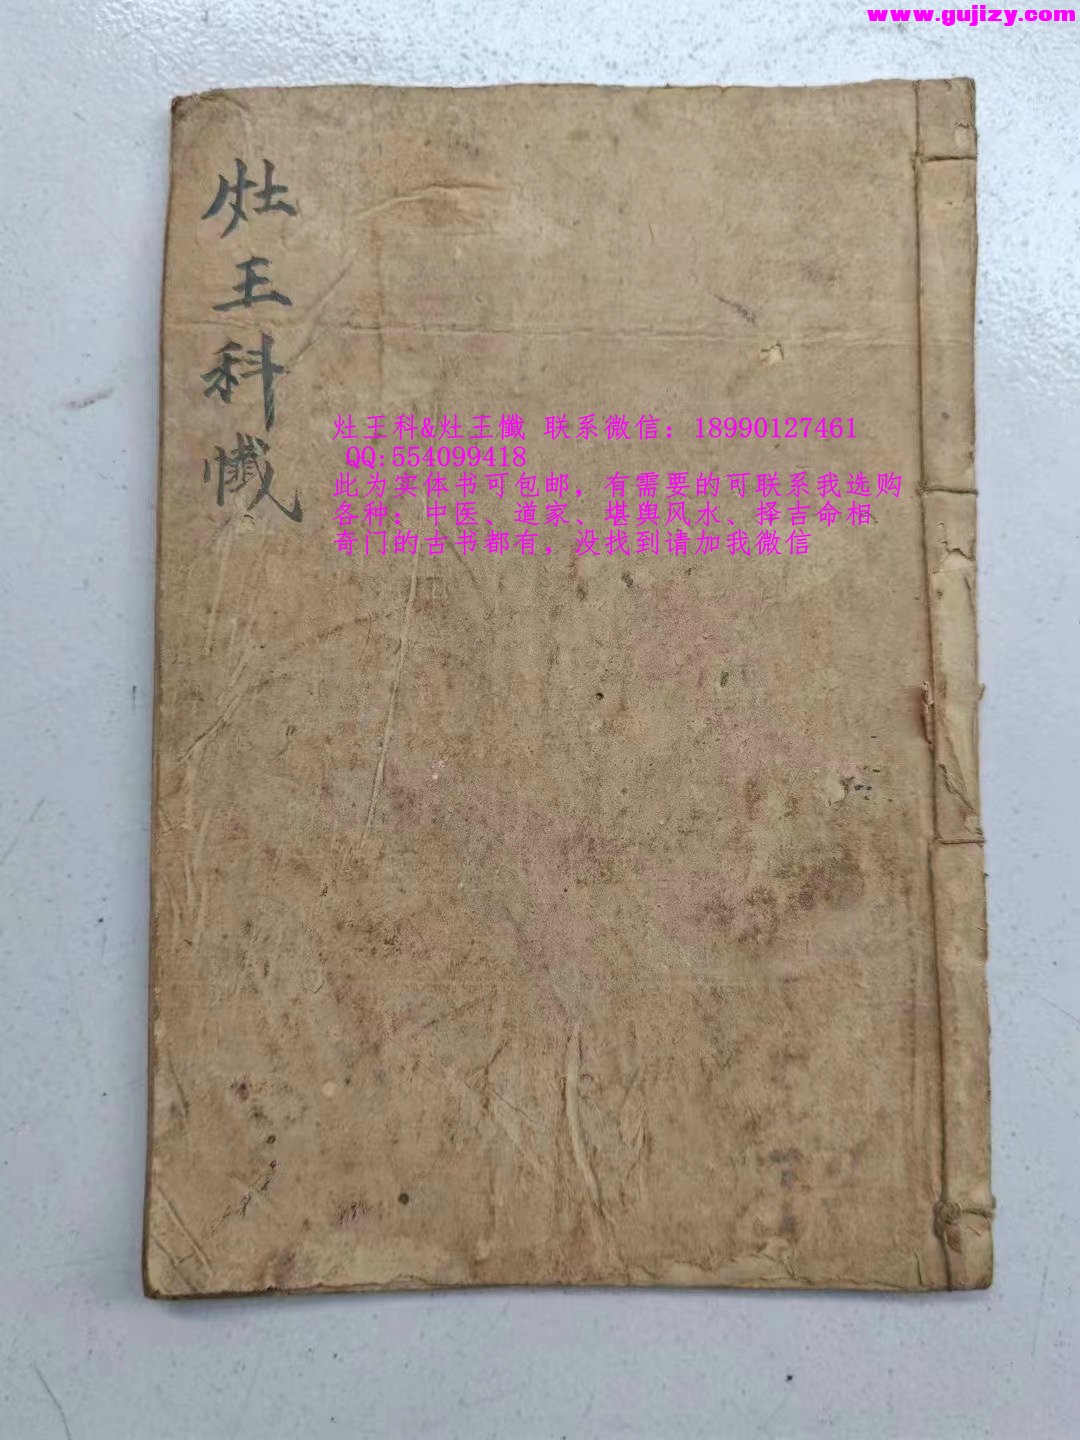 www.gujizy.com
灶王科懺
灶王科&灶王懺 联系微信：18990127461
QQ:554099418
此为实体书可包邮，有需要的可联系我选购
各种：中医、道家、堪舆风水、择吉命相
奇门的古书都有，没找到请加我微信